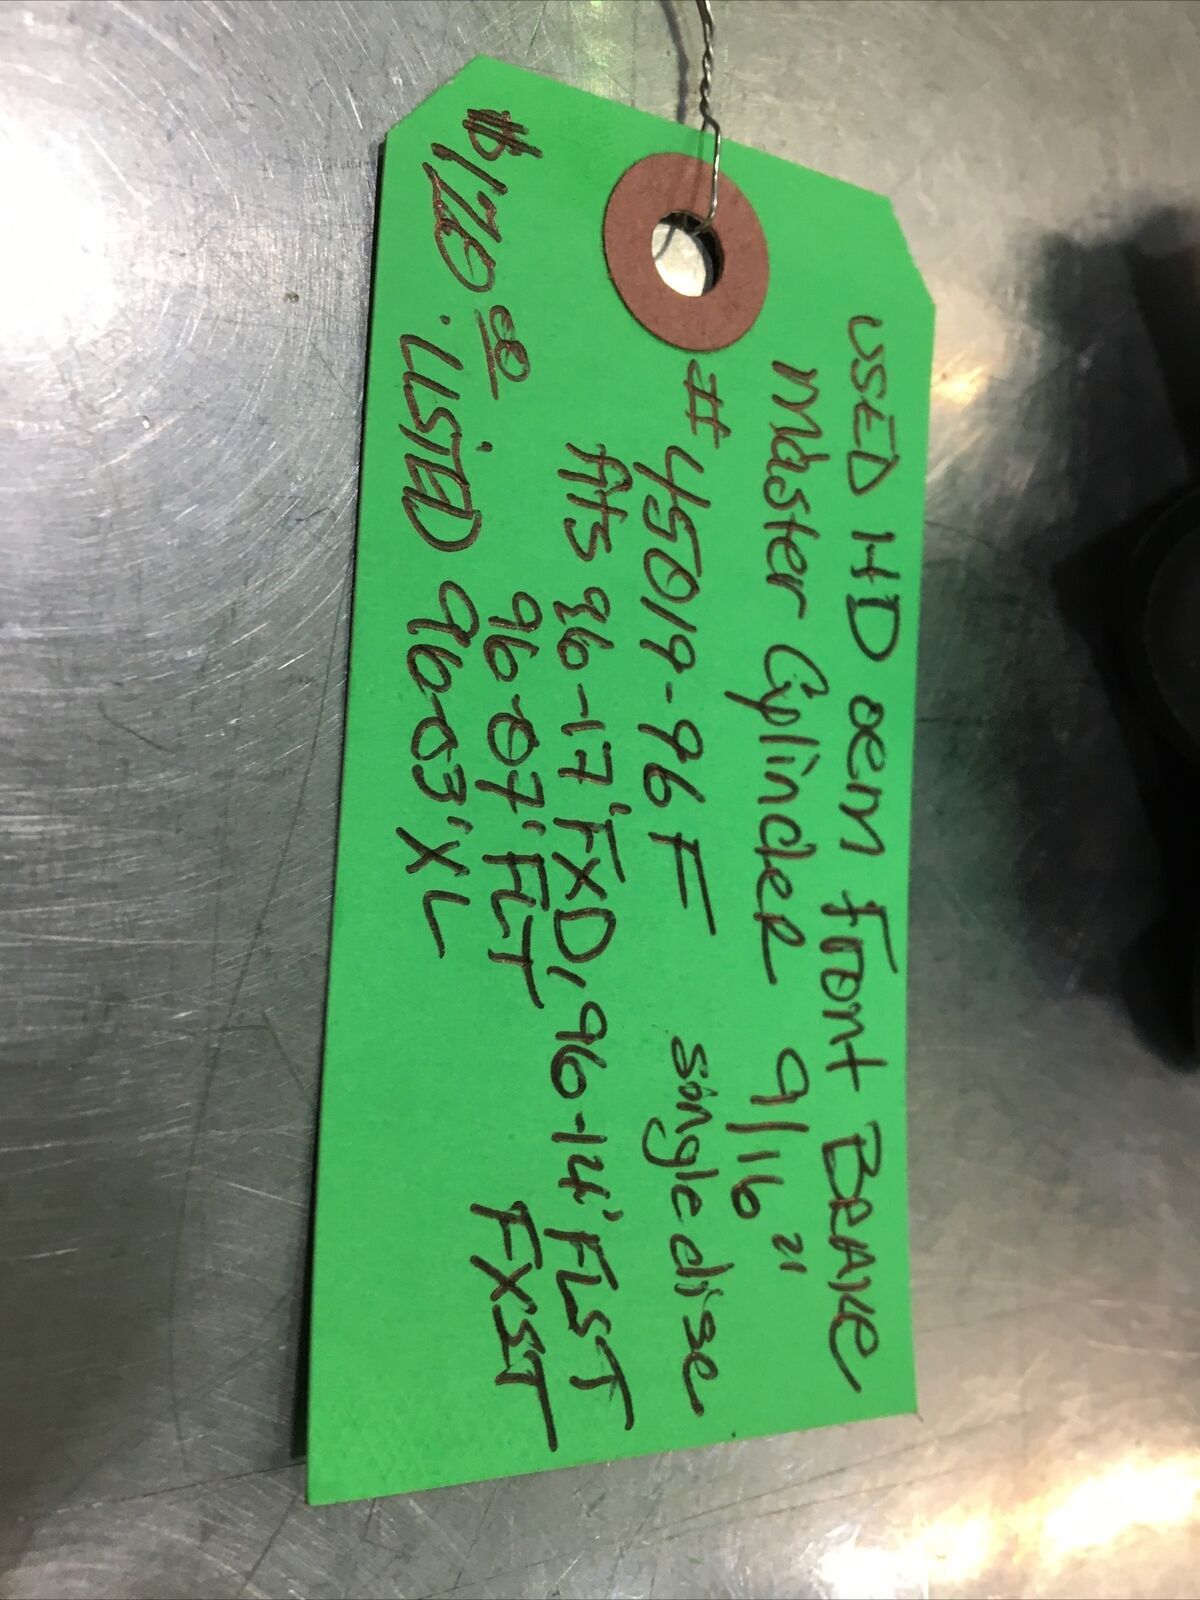 USED HD oem Front BRAKE
Master Cylinder 9/16"
#45019-96F single disc
fits 96-17' FXD, 96-14' FLST
96-07' FLT FXST
$170.00 . LISTED 96-03' XL